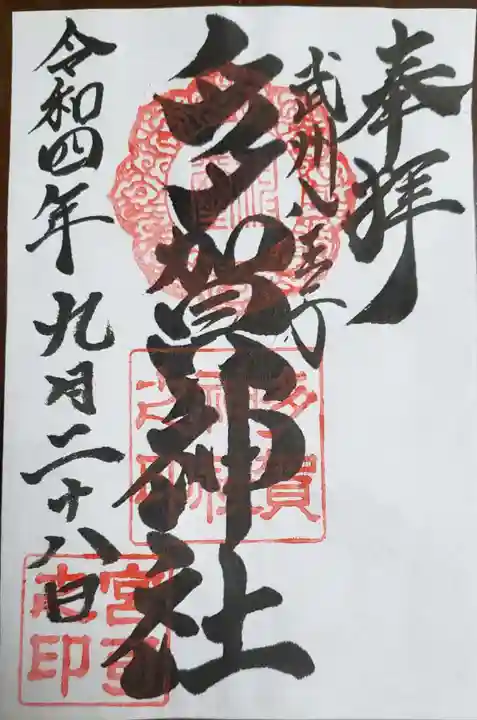 奉拝
武州八王子
多賀神社
令和四年九月二十八日
多賀
神社
之印
宮司
之印